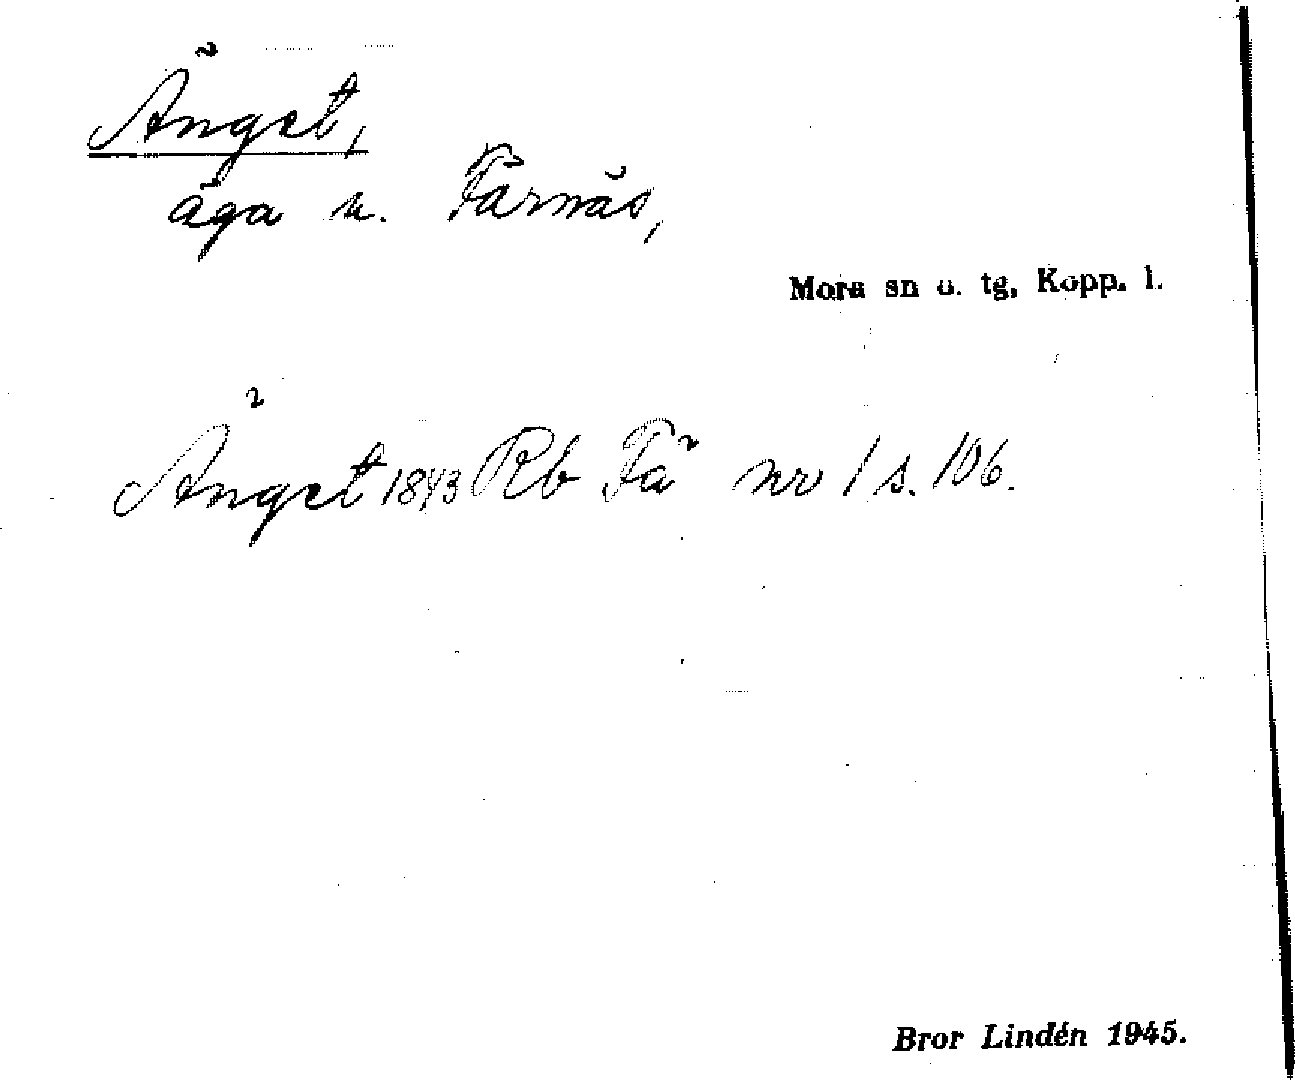 Änget,
äga u. Färnäs,
Mora sn o. tg, Kopp. l.
Änget 1843 Rb Fä nr 1 s. 106.
Bror Lindén 1945.